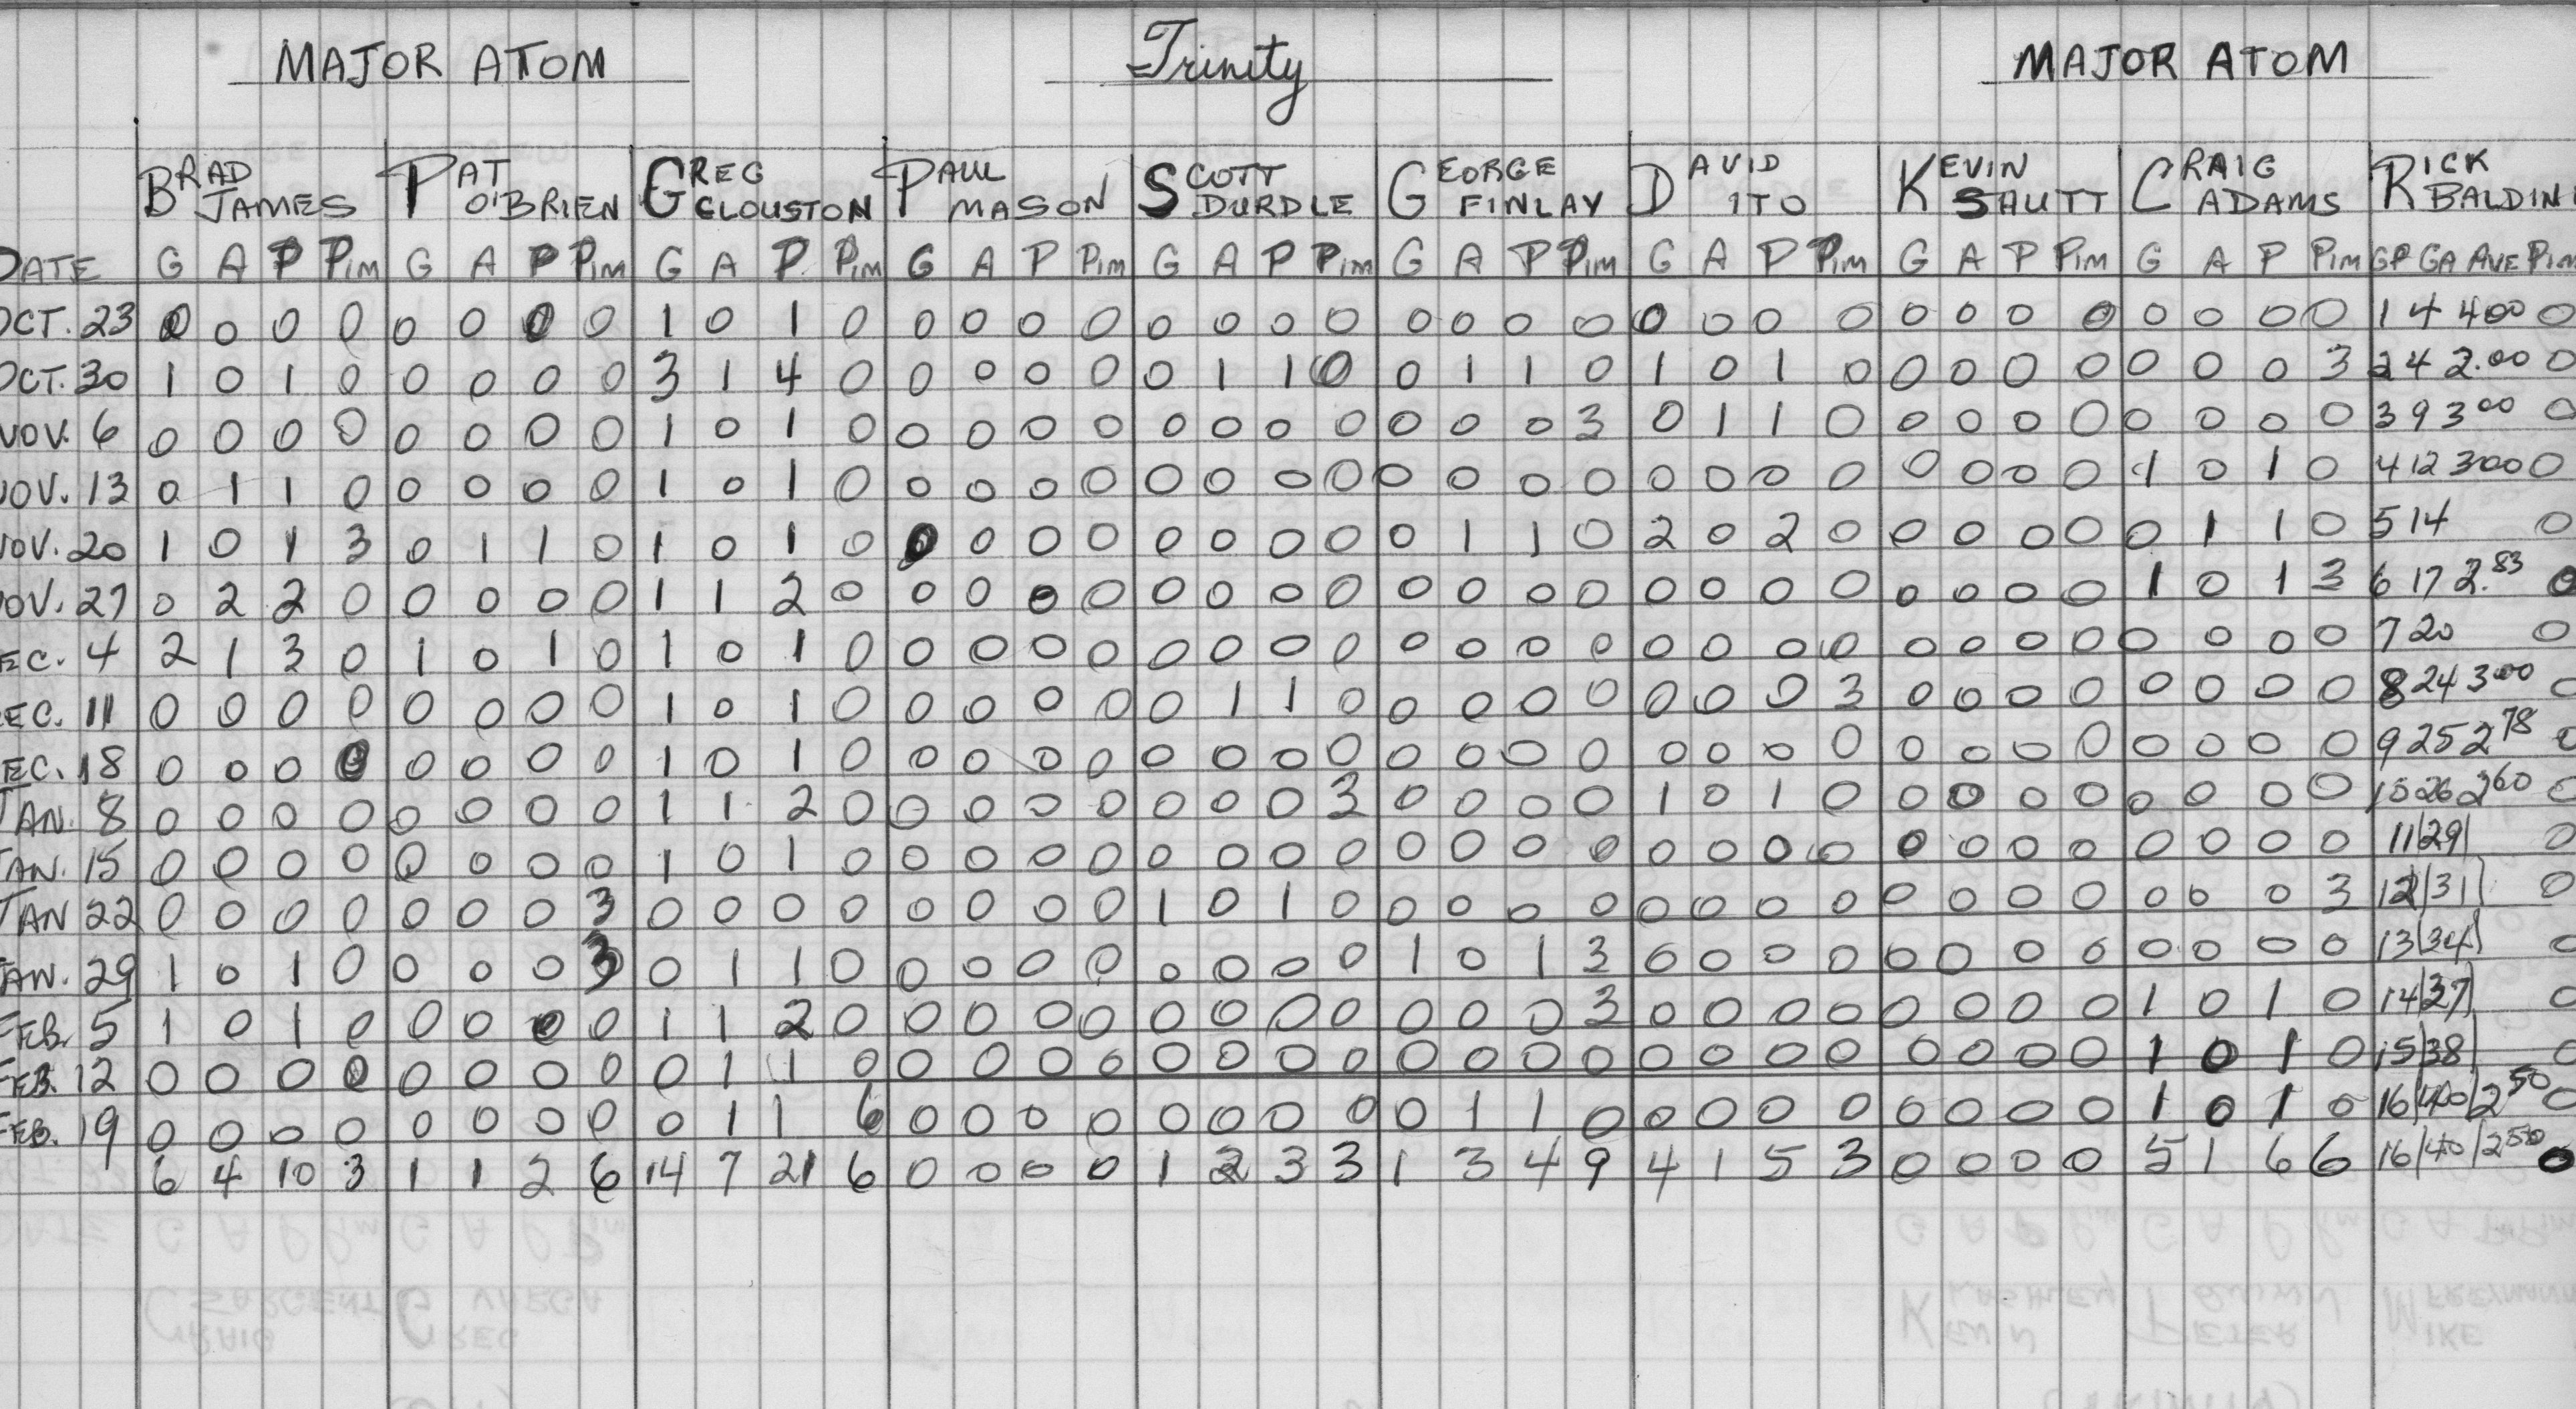 MAJOR ATOM Trinity MAJOR ATOM
BRAD JAMES PAT O'BRIEN GREG CLOUSTON PAUL MASON SCOTT DURDLE GEORGE FINLAY DAVID ITO KEVIN SHUTT CRAIG ADAMS RICK BALDIN
DATE G A P PIM G A P PIM G A P PIM G A P PIM G A P PIM G A P PIM G A P PIM G A P PIM G A P PIM GP GA AVE PIM
OCT. 23 0 0 0 0 0 0 0 0 1 0 1 0 0 0 0 0 0 0 0 0 0 0 0 0 0 0 0 0 0 0 0 0 0 0 0 0 1 4 4.00 0
OCT. 30 1 0 1 0 0 0 0 0 3 1 4 0 0 0 0 0 0 1 1 0 0 1 1 0 1 0 1 0 0 0 0 0 0 0 0 3 2 4 2.00 0
NOV. 6 0 0 0 0 0 0 0 0 1 0 1 0 0 0 0 0 0 0 0 0 0 0 0 3 0 1 1 0 0 0 0 0 0 0 0 0 3 9 3 00 0
NOV. 13 0 1 1 0 0 0 0 0 1 0 1 0 0 0 0 0 0 0 0 0 0 0 0 0 0 0 0 0 0 0 0 0 1 0 1 0 4 12 3 00 0
NOV. 20 1 0 1 3 0 1 1 0 1 0 1 0 0 0 0 0 0 0 0 0 0 1 1 0 2 0 2 0 0 0 0 0 0 1 1 0 5 14 0
NOV. 27 0 2 2 0 0 0 0 0 1 1 2 0 0 0 0 0 0 0 0 0 0 0 0 0 0 0 0 0 0 0 0 0 1 0 1 3 6 17 2.83 0
EC. 4 2 1 3 0 1 0 1 0 1 0 1 0 0 0 0 0 0 0 0 0 0 0 0 0 0 0 0 0 0 0 0 0 0 0 0 0 7 20 0
EC. 11 0 0 0 0 0 0 0 0 1 0 1 0 0 0 0 0 0 1 1 0 0 0 0 0 0 0 0 3 0 0 0 0 0 0 0 0 8 24 3 00 0
EC. 18 0 0 0 0 0 0 0 0 1 0 1 0 0 0 0 0 0 0 0 0 0 0 0 0 0 0 0 0 0 0 0 0 0 0 0 0 9 25 2 78 0
JAN. 8 0 0 0 0 0 0 0 0 1 1 2 0 0 0 0 0 0 0 0 3 0 0 0 0 1 0 1 0 0 0 0 0 0 0 0 0 10 26 2 60 0
JAN. 15 0 0 0 0 0 0 0 0 1 0 1 0 0 0 0 0 0 0 0 0 0 0 0 0 0 0 0 0 0 0 0 0 0 0 0 0 11 29 0
JAN 22 0 0 0 0 0 0 0 3 0 0 0 0 0 0 0 0 1 0 1 0 0 0 0 0 0 0 0 0 0 0 0 0 0 0 0 3 12 31 0
JAN. 29 1 0 1 0 0 0 0 3 0 1 1 0 0 0 0 0 0 0 0 0 1 0 1 3 0 0 0 0 0 0 0 0 0 0 0 0 13 34 0
FEB. 5 1 0 1 0 0 0 0 0 1 1 2 0 0 0 0 0 0 0 0 0 0 0 0 3 0 0 0 0 0 0 0 0 1 0 1 0 14 37 0
FEB. 12 0 0 0 0 0 0 0 0 0 1 1 0 0 0 0 0 0 0 0 0 0 0 0 0 0 0 0 0 0 0 0 0 1 0 1 0 15 38 0
FEB. 19 0 0 0 0 0 0 0 0 0 1 1 6 0 0 0 0 0 0 0 0 0 1 1 0 0 0 0 0 0 0 0 0 1 0 1 0 16 40 2 50 0
6 4 10 3 1 1 2 6 14 7 21 6 0 0 0 0 1 2 3 3 1 3 4 9 4 1 5 3 0 0 0 0 5 1 6 6 16 40 2 50 0